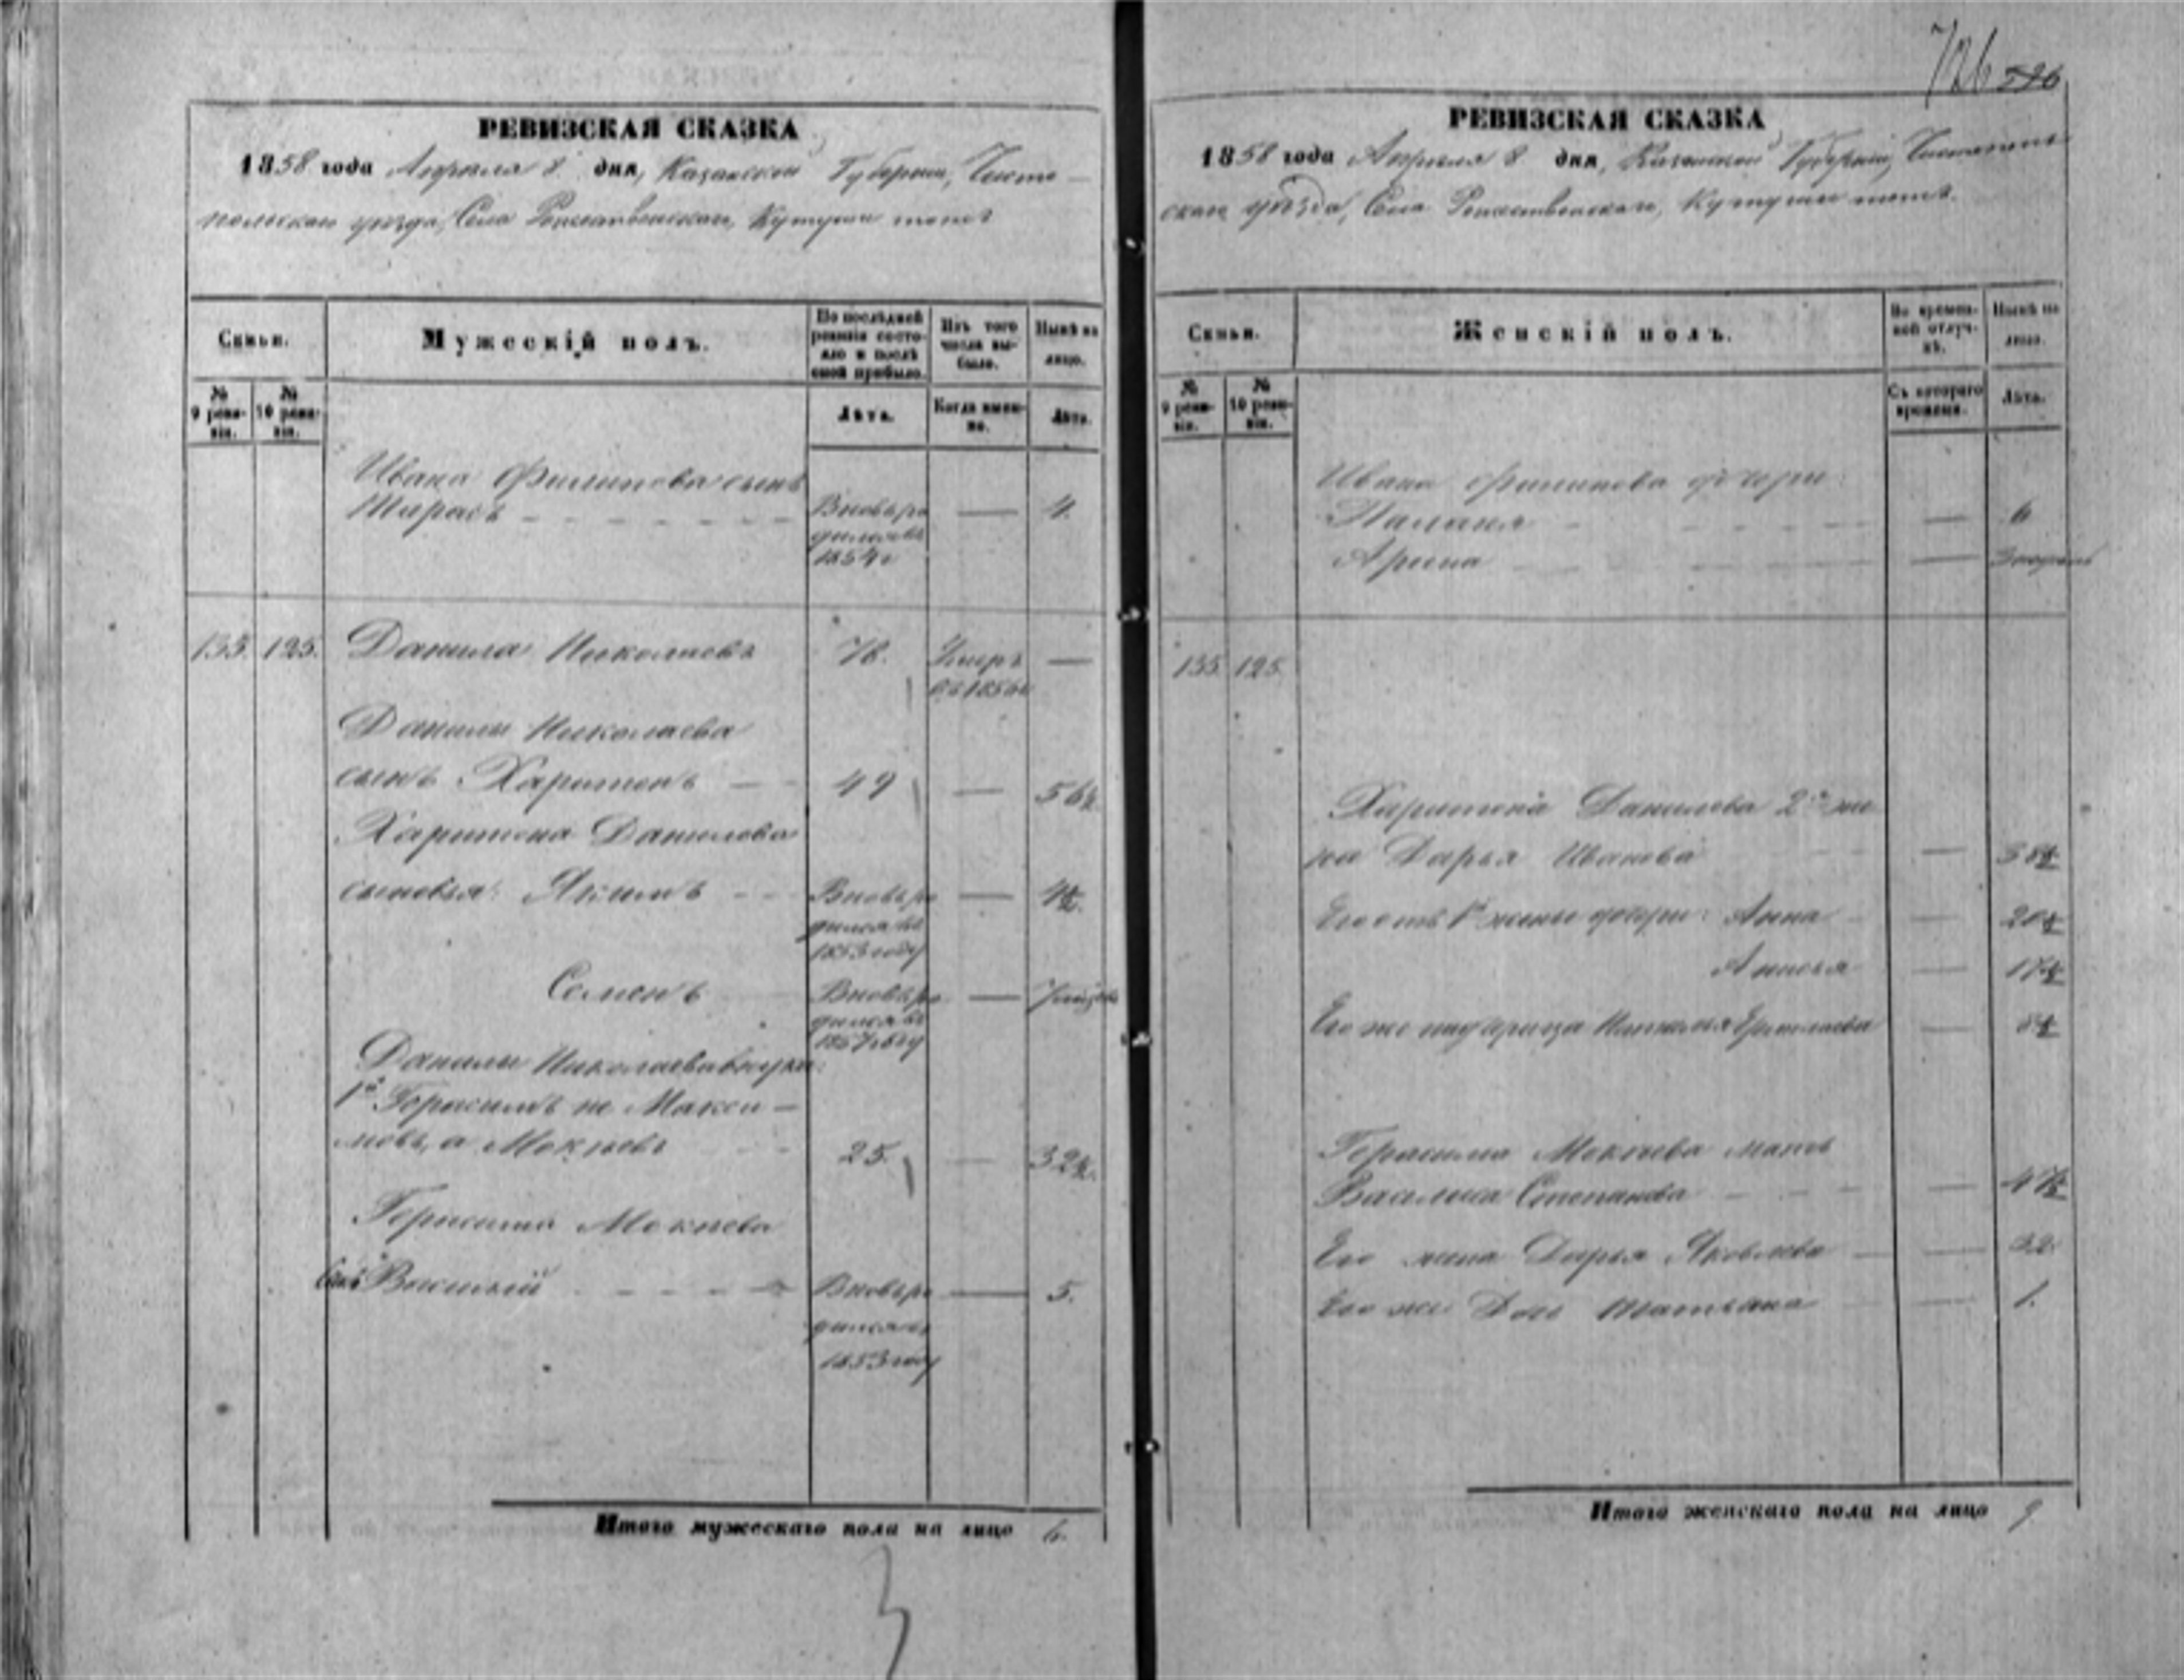 726 596
РЕВИЗСКАЯ СКАЗКА
1858 года Апреля 8 дня, Казанской Губернии, Чисто-
польскаго уезда, Села Рождественскаго, Кутуши тожъ
Семьи.
Мужескій полъ.
По последней ревизіи состояло и после оной прибыло.
Изъ того числа выбыло.
Ныне на лицо.
№ 9 ревизіи.
№ 10 ревизіи.
Лета.
Когда именно.
Лета.
Ивана Филипова сынъ
Тарасъ Вновь ро 4.
дился въ
1854 г
135. 125. Данила Николаевъ 78. Умеръ —
въ 185
Данилы Николаева
сынъ Харитонъ 49 — 56½
Харитона Данилова
сыновья: Якимъ Вновь ро — 4½.
дился въ
1853 году
Семенъ Вновь ро —
дился въ
1857 году
Данилы Николаева внуки:
1й Герасимъ не Макси-
мовъ, а Мокеевъ 25. — 32½.
Герасима Мокеева
сынъ Василій Вновь ро — 5.
дился въ
1853 году
Итого мужескаго пола на лицо 6.
РЕВИЗСКАЯ СКАЗКА
1858 года Апреля 8 дня, Казанской Губерніи, Чистополь
скаго уезда, Села Рождественскаго, Кутуши тожъ.
Семьи.
Женскій полъ.
Во временной отлучке.
Ныне на лицо.
№ 9 ревизіи.
№ 10 ревизіи.
Съ котораго времени.
Лета.
Ивана Филипова дочери:
Палагея — 6
Арина —
135 125.
Харитона Данилова 2я же
на Дарья Иванова — 38½
Его отъ 1й жены дочери: Анна — 20½
Анисья — 17½
Его же падчерица Наталья Ермолаева — 8½
Герасима Мокеева мать
Василиса Степанова — 47½
Его жена Дарья Яковлева — 32.
Его же дочь Татьяна — 1.
Итого женскаго пола на лицо 9